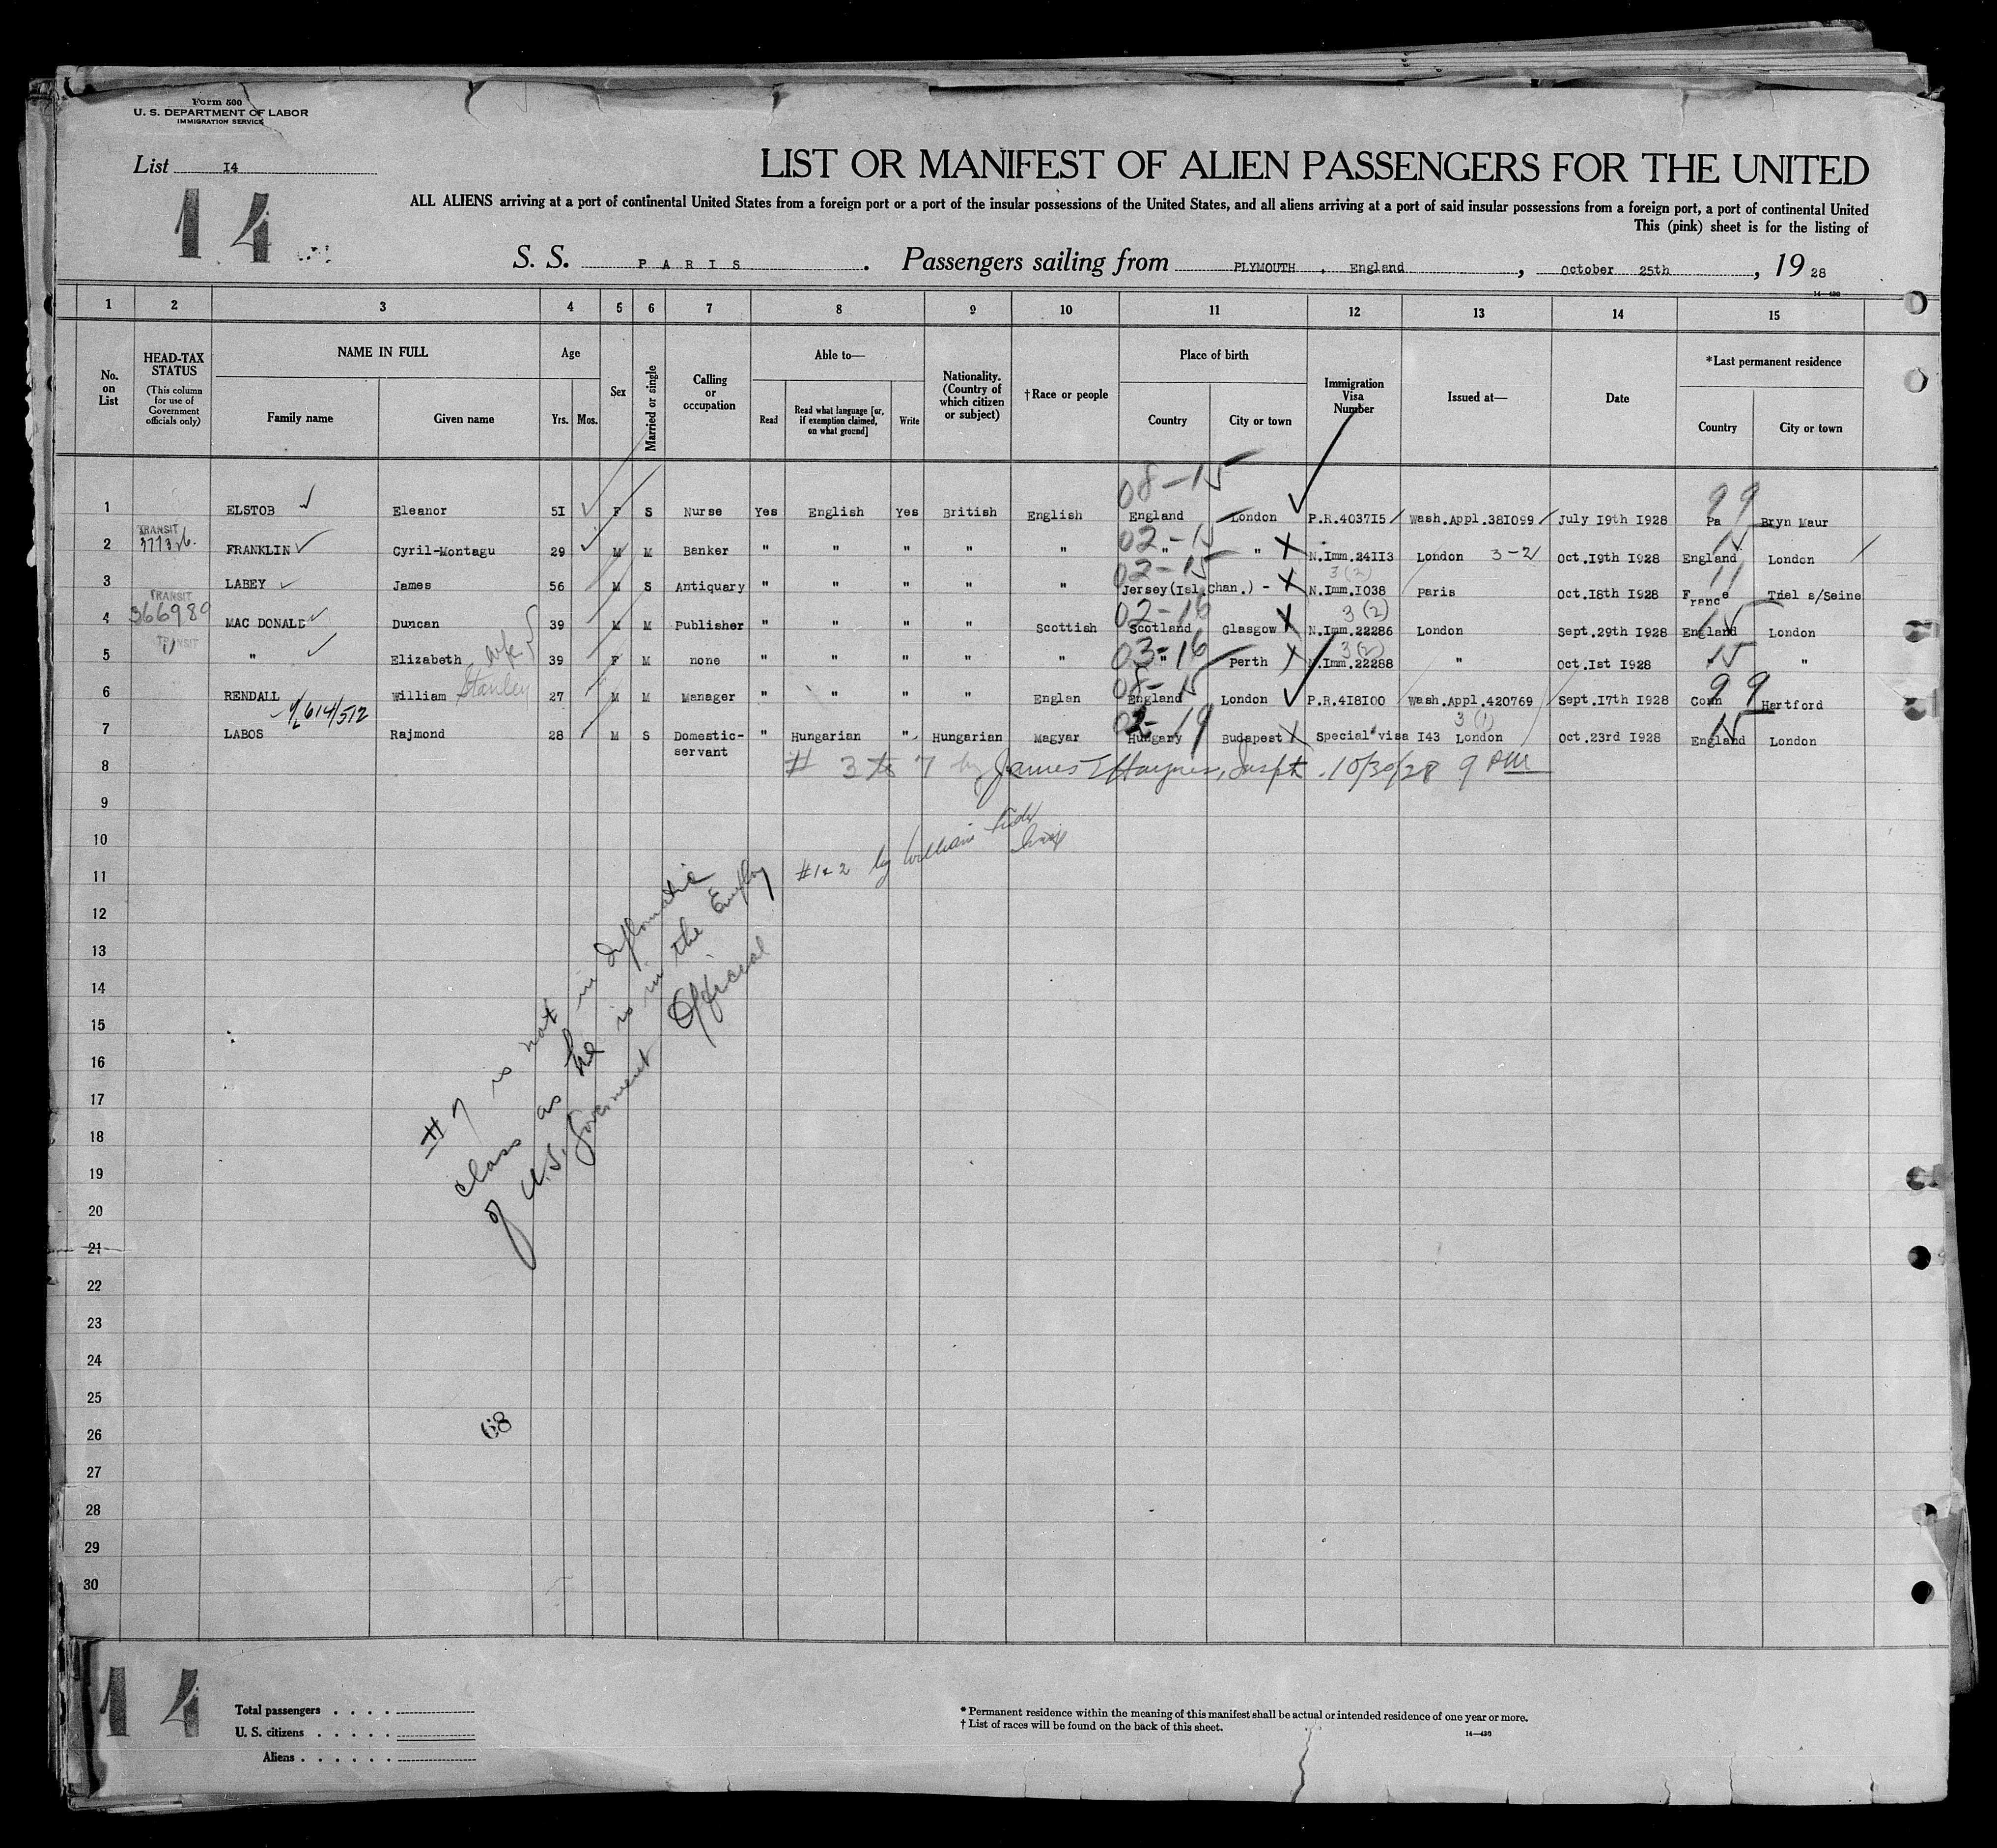 Form 500
U. S. DEPARTMENT OF LABOR
IMMIGRATION SERVICE
List 14
LIST OR MANIFEST OF ALIEN PASSENGERS FOR THE UNITED
ALL ALIENS arriving at a port of continental United States from a foreign port or a port of the insular possessions of the United States, and all aliens arriving at a port of said insular possessions from a foreign port, a port of continental United
This (pink) sheet is for the listing of
14
S. S. PARIS. Passengers sailing from PLYMOUTH, England, October 25th, 1928
14—430
1 2 3 4 5 6 7 8 9 10 11 12 13 14 15
No. on List
HEAD-TAX STATUS (This column for use of Government officials only)
NAME IN FULL
Family name Given name
Age
Yrs. Mos.
Sex
Married or single
Calling or occupation
Able to—
Read Read what language [or, if exemption claimed, on what ground] Write
Nationality. (Country of which citizen or subject)
†Race or people
Place of birth
Country City or town
Immigration Visa Number
Issued at—
Date
*Last permanent residence
Country City or town
08-15 99
1 ELSTOB Eleanor 51 F S Nurse Yes English Yes British English England London P.R.403715 Wash.Appl.381099 July 19th 1928 Pa Bryn Maur
TRANSIT
02-15 15
2 FRANKLIN Cyril-Montagu 29 M M Banker " " " " " " " N.Imm.24113 London 3-2 Oct.19th 1928 England London
02-15 3(2) 11
3 LABEY James 56 M S Antiquary " " " " " Jersey(Isl.Chan.) - N.Imm.1038 Paris Oct.18th 1928 France Triel s/Seine
TRANSIT
366989 02-16 3(2) 15
4 MAC DONALD Duncan 39 M M Publisher " " " " Scottish Scotland Glasgow N.Imm.22286 London Sept.29th 1928 England London
TRANSIT
wife 03-16 3(2) 15
5 " Elizabeth 39 F M none " " " " " " Perth N.Imm.22288 " Oct.1st 1928 " "
08-15 99
6 RENDALL William Stanley 27 M M Manager " " " " Englan England London P.R.418100 Wash.Appl.420769 Sept.17th 1928 Conn Hartford
614/512 02-19 3(1) 15
7 LABOS Rajmond 28 M S Domestic-servant " Hungarian " Hungarian Magyar Hungary Budapest Special visa 143 London Oct.23rd 1928 England London
8 # 3 to 7 by James Haynes, Inspt. 10/30/28 9 PM
9
10
11 #1 & 2 by William
12
13
14
15
16
17
18
19
20
21
22
23
24
25
26
27
28
29
30
#7 is not in diplomatic
class as he is in the Employ
of U.S. Government Official
68
14
Total passengers
U. S. citizens
Aliens
*Permanent residence within the meaning of this manifest shall be actual or intended residence of one year or more.
†List of races will be found on the back of this sheet.
14—430